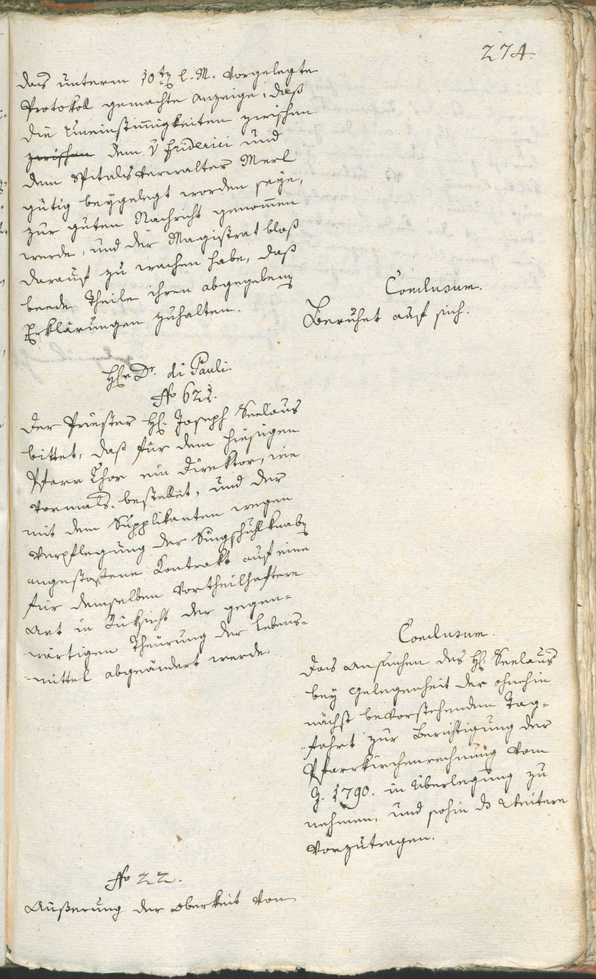 274.
das unterm 30ten l. M. vorgelegte
Protokol gemachte Anzeige, daß
die Uneinstimmigkeiten zwischen
zwischen dem Friderici und
dem Spitalsverwalter Merl
gütig beygelegt worden seye,
zur guten Nachricht genommen
werde, und der Magistrat blos
darauf zu wachen habe, daß
beede Theile ihren abgegebenen
Erklärungen zuhalten.
Conclusum.
Beruhet auf sich.
Hr. Dr. di Pauli.
No 621.
Der Priester Hr. Joseph Seelaus
bittet, daß für dem hiesigen
Pfarr Chor ein Direktor, wie
vormals bestellet, und der
mit dem Supplikanten wegen
Verpflegung der Singschuhlknaben
angestossene Kontrakt auf eine
für demselben vortheilhaftere
Art in Rüksicht der gegen-
wärtigen Theurung der Lebens-
mittel abgeändert werde.
Conclusum.
Das Ansuchen des Hr. Seelaus
bey Gelegenheit der ohnehin
nächst bevorstehenden Tag-
fahrt zur Berichtigung der
Pfarrkirchenrechnung vom
J. 1790. in Überlegung zu
nehmen, und sohin das Weitere
vorzutragen.
No 22.
Äußerung der Oberkeit von